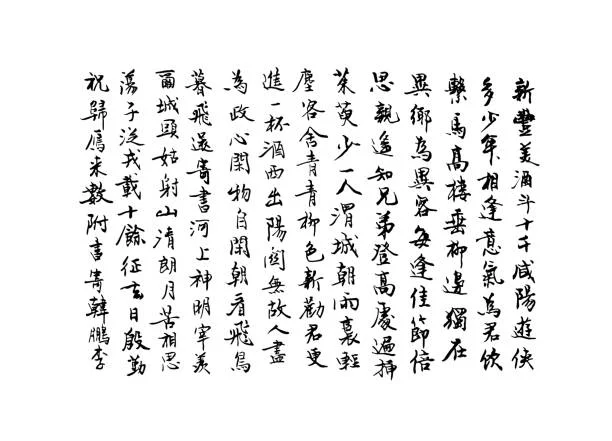 新豐美酒斗十千咸陽遊俠
多少年相逢意氣為君飲
繫馬高樓垂柳邊獨在
異鄉為異客每逢佳節倍
思親遙知兄弟登高處遍插
茱萸少一人渭城朝雨裛輕
塵客舍青青柳色新勸君更
進一杯酒西出陽關無故人盡
為政心閑物自閑朝看飛鳥
暮飛還寄書河上神明宰羨
爾城頭姑射山清朗月苦相思
蕩子從戎載十餘征去日殷勤
祝歸雁來數附書寄韓鵬李